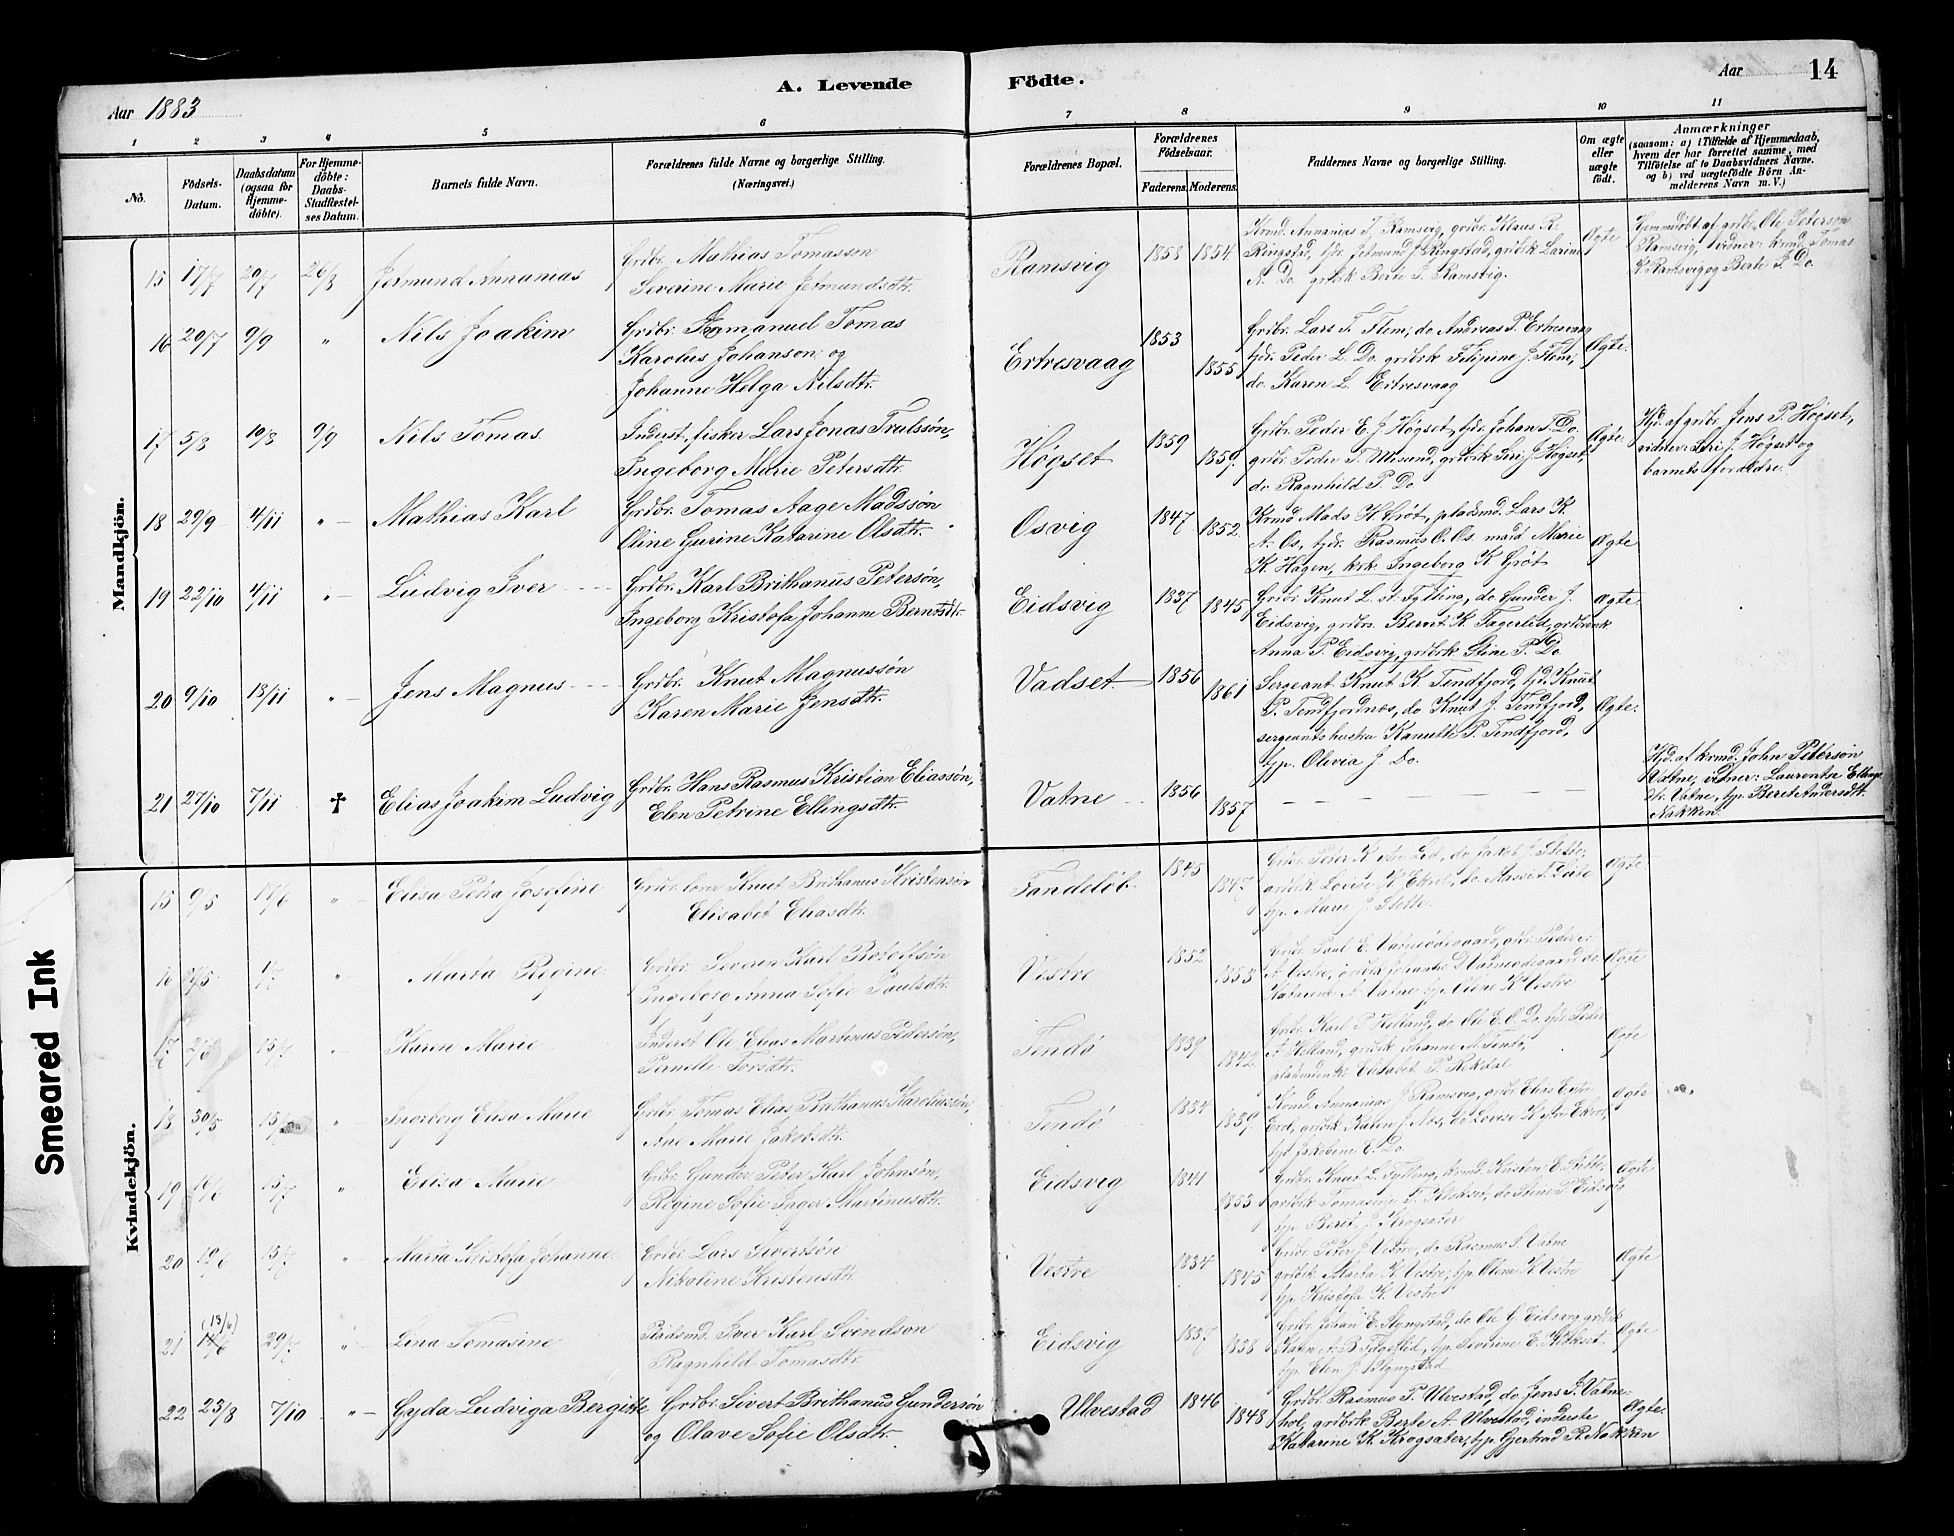 A. Levende Födte.
Aar 1883
Aar 14
1 2 3 4 5 6 7 8 9 10 11
No.
Födsels-Datum.
Daabsdatum (ogsaa for Hjemme-döbte).
For Hjemme-döbte: Daabs-Stadfæstel-ses Datum.
Barnets fulde Navn.
Forældrenes fulde Navne og borgerlige Stilling.
(Næringsvei.)
Forældrenes Bopæl.
Forældrenes Födselsaar.
Faderens. Moderens.
Faddernes Navne og borgerlige Stilling.
Om ægte eller uægte födt.
Anmærkninger
(saasom: a) i Tilfælde af Hjemmedaab, hvem der har forrettet samme, med Tilföielse af to Daabsvidners Navne, og b) ved uægtefödte Börn Anmelderens Navn m. V.)
Mandkjön.
15 17/7 29/7 26/8 Jetmund Annanias
Grdbr. Mathias Tomasson
Severine Marie Jetmundsdtr.
Ramsvig 1858 1854
Krmd. Annanias J. Ramsvig, grdbr. Klaus R.
Ringstad, tjdr. Jetmund J. Ringstad, grdbrk Larine
N. Do. grdbrk Berte P. Ramsvig.
Ægte
Hjemmedøbt af grdbr. Ole Peterson
Ramsvig, vidner: krmd. Tomas
K. Ramsvig og Berte P. Do.
16 20/7 9/9 " Nils Joakim
Grdbr. Emmanuel Tomas
Karolus Johanson og
Johanne Helga Nilsdtr.
Ertresvaag 1853 1855
Grdbr. Lars T. Flem, do Andreas P. Ertresvaag
tjdr. Peder L. Do. grdbrk Filipine J. Flem,
do. Karen L. Ertresvaag
Ægte.
17 5/8 10/8 9/9 Nils Tomas
Inderst, fisker Lars Jonas Trulssøn,
Ingeborg Marie Petersdtr.
Høgset 1859 1859
Grdbr. Peder E. J. Høgset, tjdr. Johan T. Do.
grdbr. Peder T. Misund, grdbrk Siri J. Høgset,
do. Ragnhild P. Do
Ægte.
Hjd. af grdbr. Jens P. Høgset,
vidner: Siri J. Høgset og
barnets forældre.
18 29/9 4/11 " Mathias Karl
Grdbr. Tomas Aage Madssøn
Oline Gurine Katarine Olsdtr.
Osvig 1847 1852
Krmd Mads H. Grøt, pladsmd. Lars K.
A. Os, tjdr. Rasmus O. Os. maid Marie
K. Hagen, krk. Ingeborg K Grøt
Ægte
19 22/10 4/11 " Ludvig Iver
Grdbr. Karl Brithanus Petersøn,
Ingeborg Kristofa Johanne Berntsdtr.
Eidsvig 1837 1845
Grdbr. Knut L. st. Fylling, do. Gunder J.
Eidsvig, grdbr. Bernt K. Fagerlid, grdbrenk
Anna P. Eidsvig, grdbrk Stine P. Do
Ægte
20 9/10 18/11 " Jens Magnus
Grdbr. Knut Magnussøn
Karen Marie Jensdtr.
Vadset 1856 1861
Sergeant Knut K. Tendfjord, tjd. Knut
P. Tendfjordnæs, do Knut J. Tendfjord,
sergeantshustru Kanutte P. Tendfjord,
tjp. Olevia J. Do.
Ægte.
21 27/10 7/11 ✝ Elias Joakim Ludvig
Grdbr. Hans Rasmus Kristian Eliassøn,
Elen Petrine Ellingsdtr.
Vatne 1856 1857
Hjd. af krmd. John Petersøn
Vatne, vidner: Laurentse Ellings-
dtr. Vatne, tjp. Berete Andersdtr.
Nakken.
Kvindekjön.
15 9/5 17/6 " Elisa Petra Josefine
Knut Brithanus Kristensøn
Elisabet Eliasdtr.
Tandeløb 1845 1847
tjp. Marie J. Stette.
Ægte
16 1/7 " Marta Regine
Grdbr. Severin Karl
Ingeborg Anna Sofie Paulsdtr.
Vestre 1852 1853
Grdbr. Paul E. Vatneødegaard, grdbr. Peder
Katarine A. Vatne tjp. Olene K. Vestre
Ægte
17 15/7 Karen Marie
Inderst Ole Elias Martinus Pedersøn,
Pernille Torsdtr.
Tendø 1839 1842
Grdbr. Karl P. Helland, do Ole E. O. Do. tjdr. Peder
A. Helland, grdbrk Johanne
Elisabet P. Rekdal
Ægte
18 30/5 15/7 " Ingeborg Elisa Marie
Grdbr. Tomas Elias Brithanus Karolussøn,
Ane Marie Jakobsdtr.
Tendø 1854 1859
Krmd. Annanias J. Ramsvig,
tjp. Jakobine E. Do.
Ægte
19 10/6 15/7 " Elisa Marie
Grdbr. Gunder Peter Karl Johnsøn,
Regine Sofie Inger Martinusdtr.
Eidsvig 1841 1853
Grdbr. Knut L. Fylling, krmd. Kristen E. Stette
tjp. Berit J. Krogsæter
Ægte
20 19/6 15/7 " Maria Kristofa Johanne
Grdbr. Lars Sivertsøn
Nikoline Kristensdtr.
Vestre 1834 1845
Grdbr. Peter J. Vestre, do Rasmus S. Vatne
grdbrk Marta K. Vestre, tjp. Olene K. Vestre
tjp. Kristofa K. Vestre
Ægte
21 (13/6) 29/7 " Lina Tomasine
Pladsmd. Iver Karl Svendsøn
Ragnhild Tomasdtr.
Eidsvig 1837 1838
Grdbr. Johan E. Slyngstad, do Ole G. Eidsvig grdbrk
Karen A. B. Fagerlid, tjp. Severine E.
tjp. Elen P. Slyngstad
Ægte
22 23/8 7/10 " Gyda Ludviga Bergitte
Grdbr. Sivert Brithanus Gundersøn
og Olave Sofie Olsdtr.
Ulvestad 1846 1848
Grdbr. Rasmus P. Ulvestad, do Jens P. Vatne-
hol, grdbrk Berte A. Ulvestad, inderste
Katarine K. Krogsæter, tjp. Gjertrud R. Nakken
Ægte.
Smeared Ink